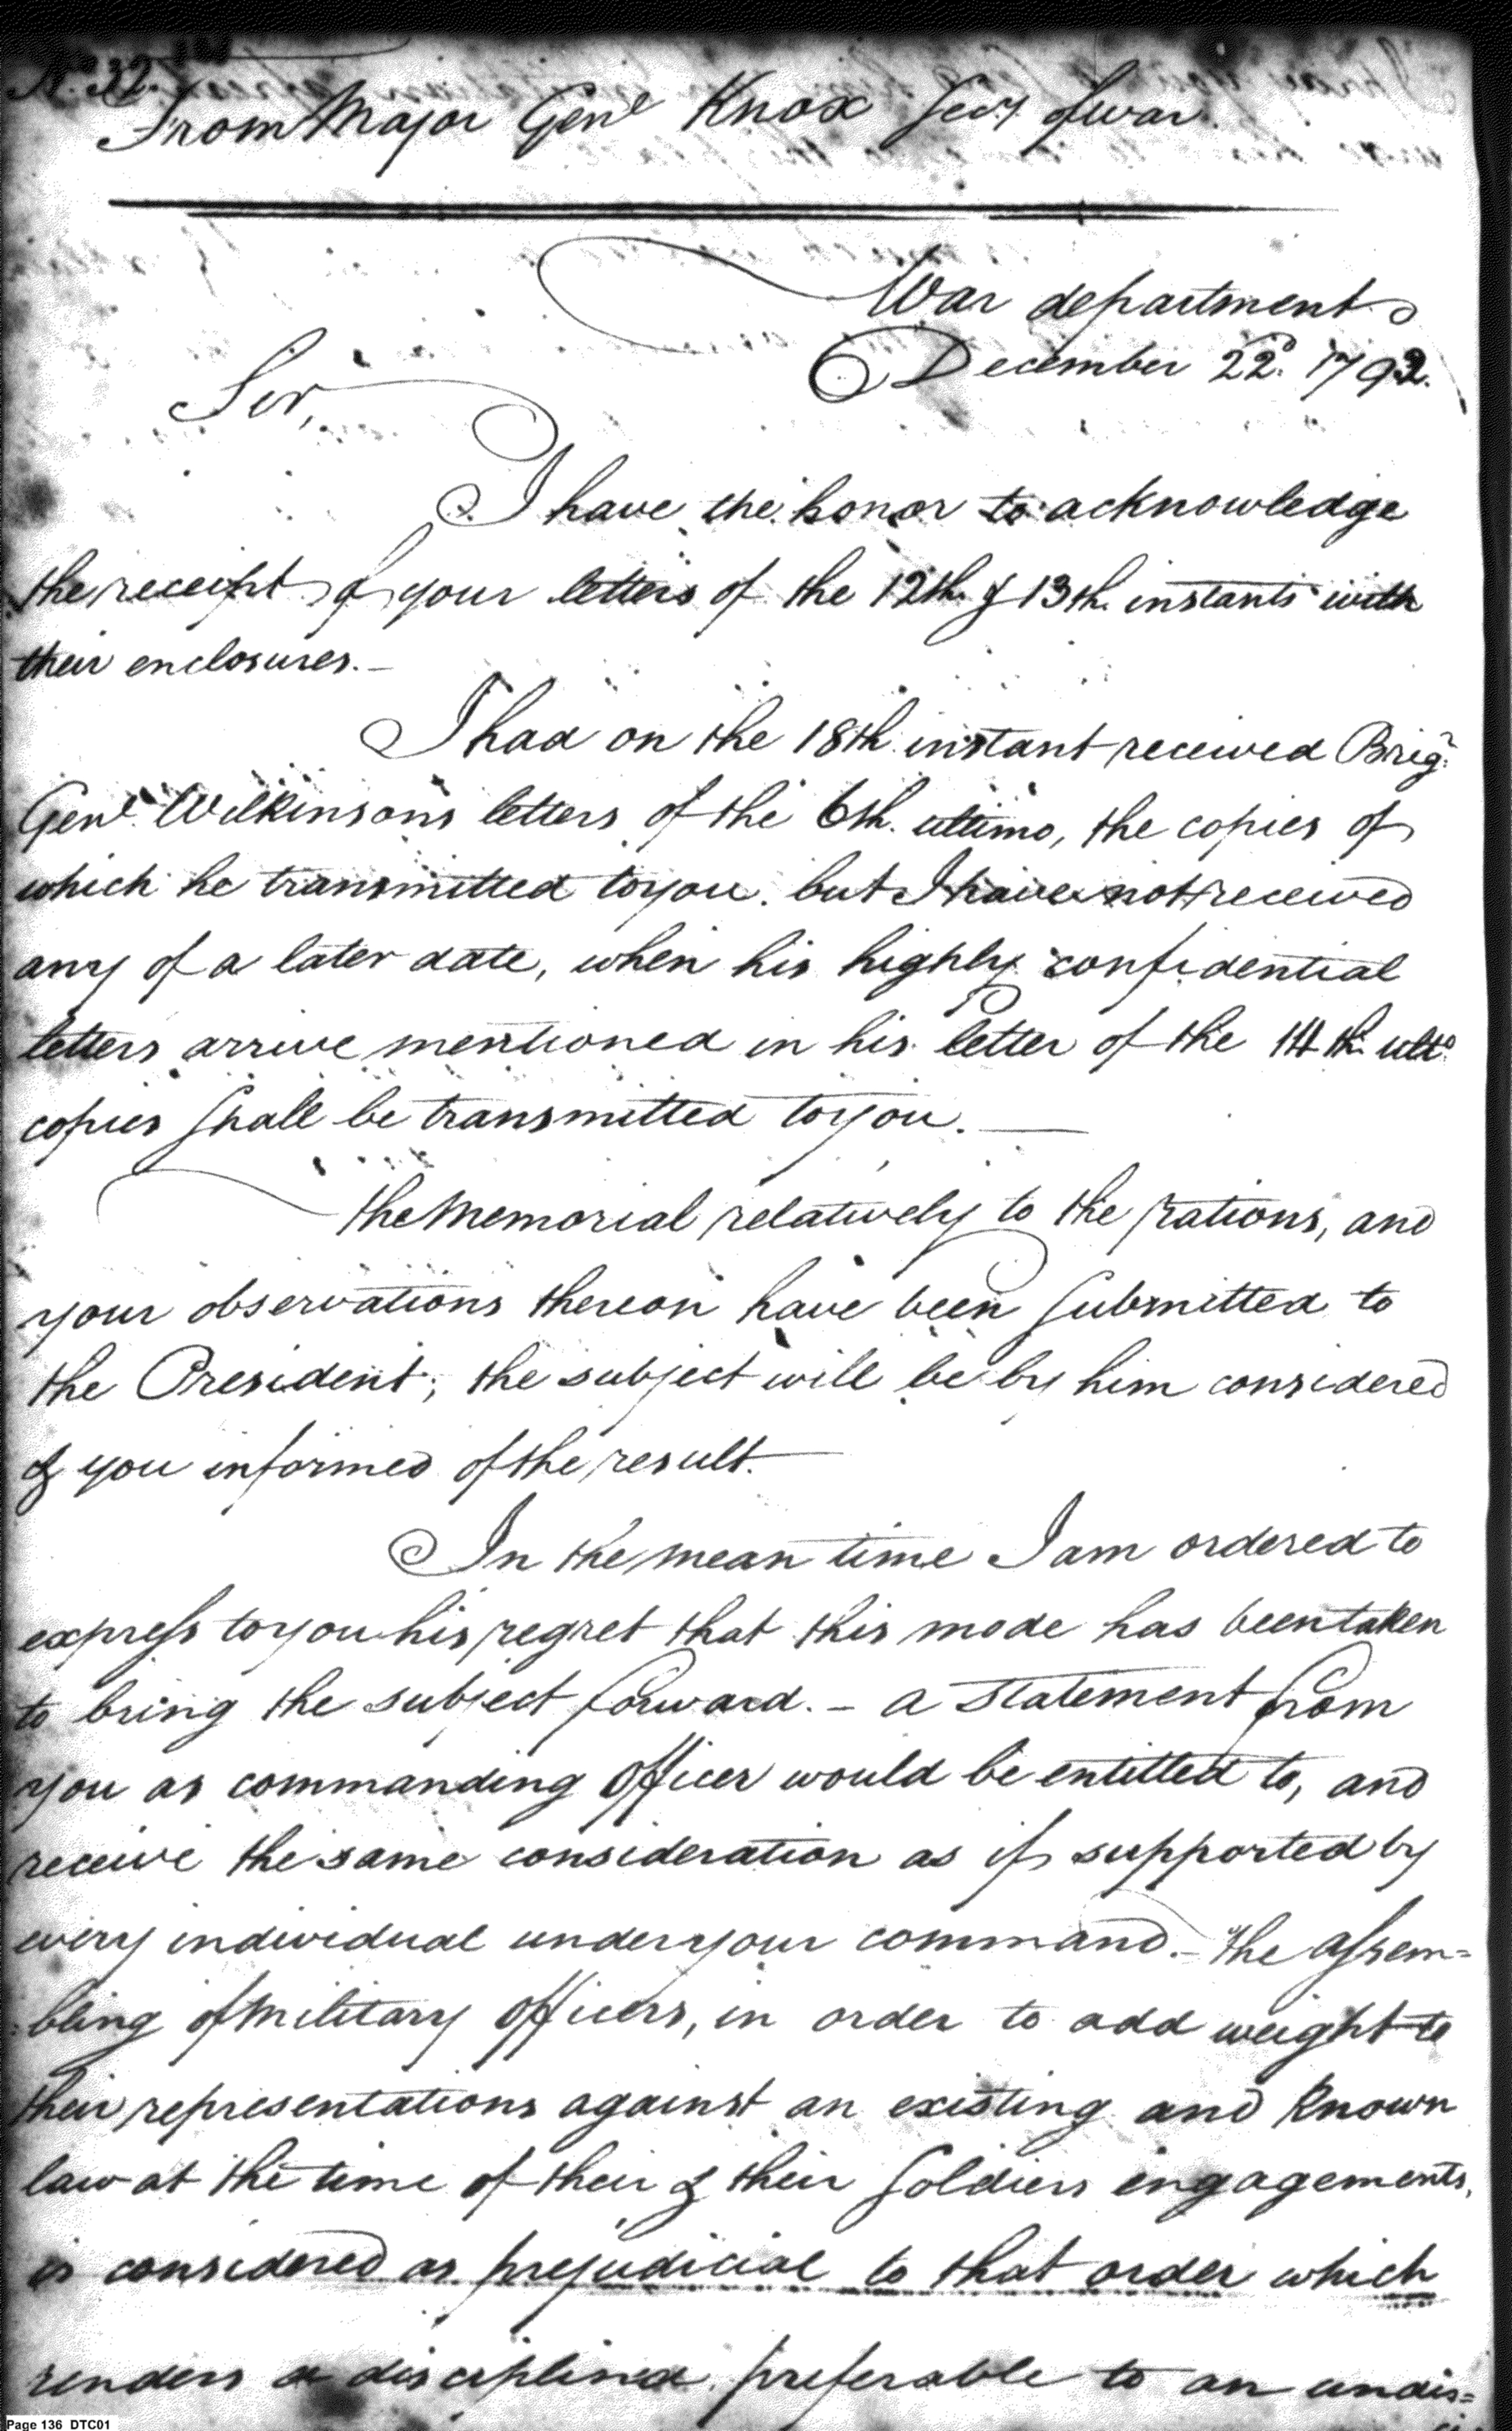 No. 32.
From Major Genl Knox Secy. of war.
War department
December 22d. 1792.
Sir,
I have the honor to acknowledge
the receipt of your letters of the 12th. & 13th. instants with
their enclosures. –
I had on the 18th instant received Brigr.
Genl. Wilkinsons letters of the 6th. ultimo, the copies of
which he transmitted to you. but I have not received
any of a later date, when his highly confidential
letters arrive mentioned in his letter of the 14th. ulto.
copies shall be transmitted to you. —
the Memorial relatively to the rations, and
your observations thereon have been submitted to
the President; the subject will be by him considered
& you informed of the result. —
In the mean time I am ordered to
express to you his regret that this mode has been taken
to bring the subject forward. – a statement from
you as commanding Officer would be entitled to, and
receive the same consideration as if supported by
every individual under your command. – the assem=
=bling of Military Officers, in order to add weight to
their representations against an existing and known
law at the time of their & their Soldiers engagements,
is considered as prejudicial to that order which
renders a disciplined preferable to an undis=
Page 136 DTC01